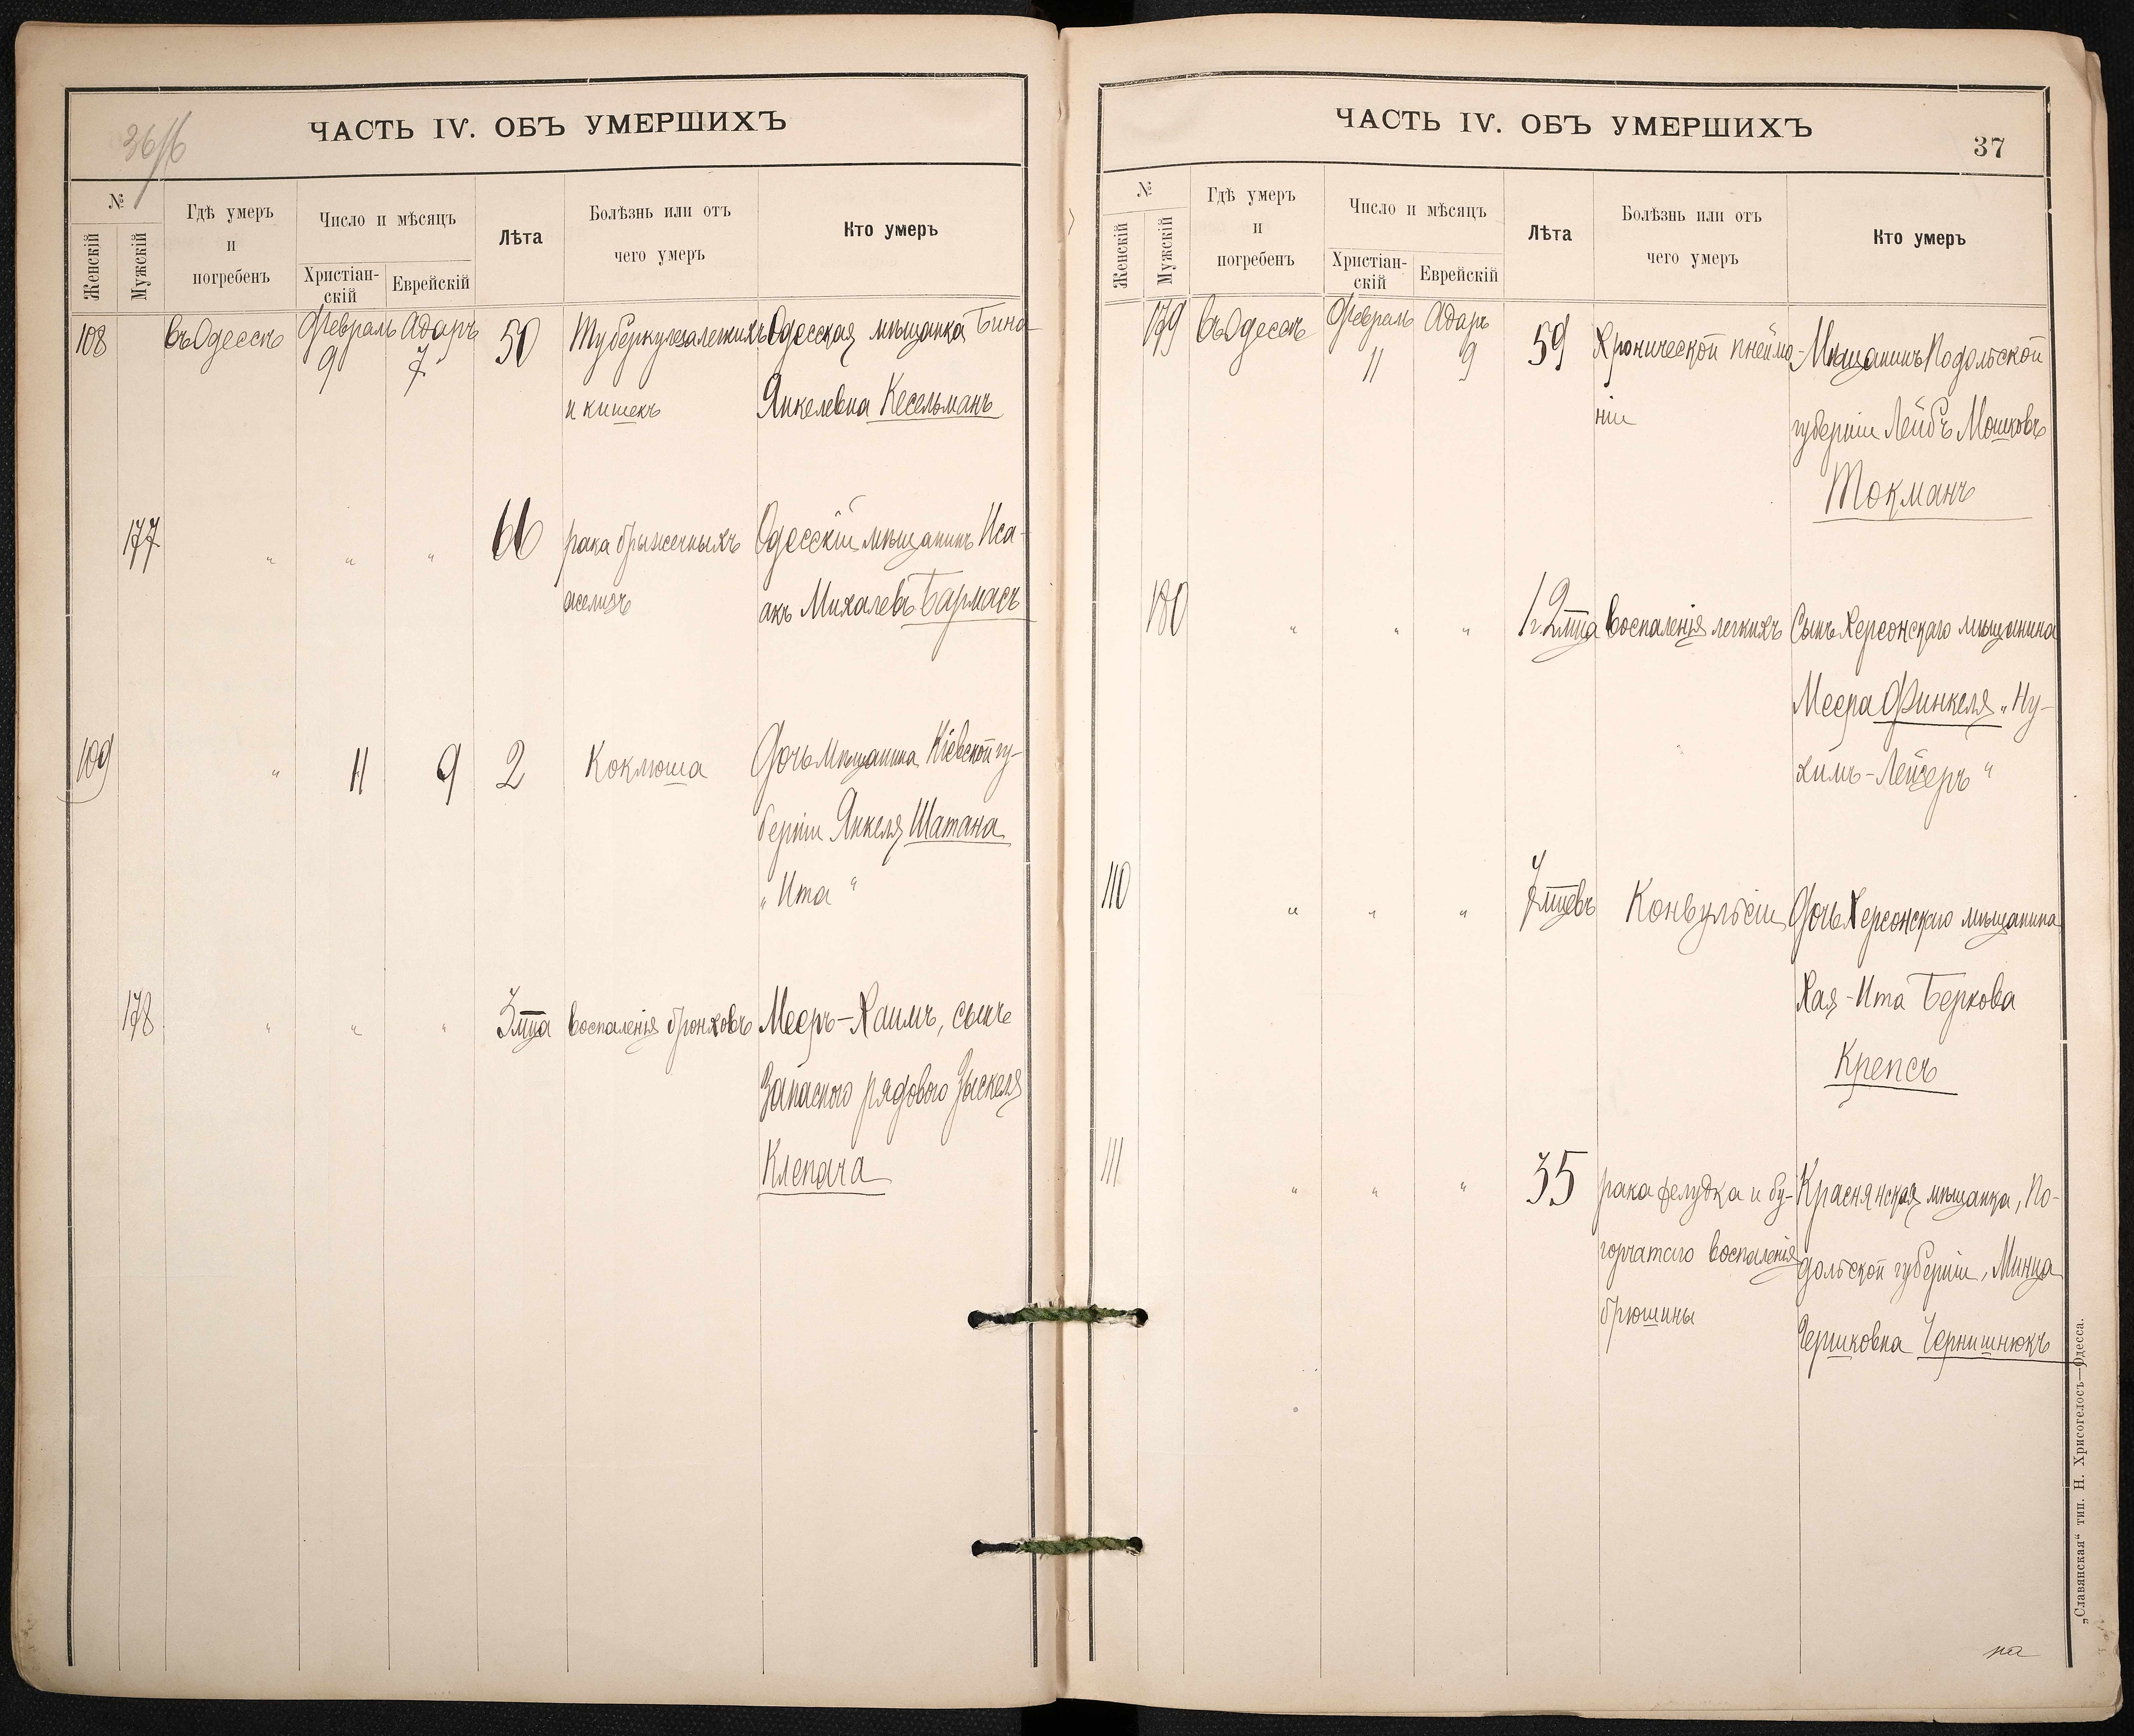 ЧАСТЬ IV. ОБЪ УМЕРШИХЪ
№
Женскій
Мужскій
Гдѣ умеръ
и
погребенъ
Число и мѣсяцъ
Христіан-
скій
Еврейскій
Лѣта
Болѣзнь или отъ
чего умеръ
Кто умеръ
108 въ Одессѣ Февраль Адаръ 50 Туберкулеза легкихъ Одесская мѣщанка Бина
9 7 и кишекъ Янкелевна Кесельманъ
177 " " " 66 рака брыжеечныхъ Одесскій мѣщанинъ Иса-
железъ акъ Михалевъ Бармасъ
109 " 11 9 2 Коклюша Дочь мѣщанина Кіевской гу-
берніи Янкеля Шатана
"Ита"
178 " " " 3 мца воспаленія бронховъ Мееръ-Хаимъ, сынъ
Запаснаго рядового Зыскеля
Клепача
ЧАСТЬ IV. ОБЪ УМЕРШИХЪ
37
№
Женскій
Мужскій
Гдѣ умеръ
и
погребенъ
Число и мѣсяцъ
Христіан-
скій
Еврейскій
Лѣта
Болѣзнь или отъ
чего умеръ
Кто умеръ
179 въ Одессѣ Февраль Адаръ 59 Хронической пнеймо- Мѣщанинъ Подольской
11 9 ніи губерніи Лейбъ Мошковъ
Токманъ
180 " " " 1 г 2 мца воспаленія легкихъ Сынъ Херсонскаго мѣщанина
Меера Финкеля "Ну-
химъ-Лейзеръ"
110 " " " 7 мцевъ Конвульсіи Дочь Херсонскаго мѣщанина
Хая-Ита Беркова
Крепсъ
111 " " " 35 рака желудка и бу- Краснянская мѣщанка, По-
горчатаго воспаленія дольской губерніи, Минца
брюшины Гершковна Чернишнюкъ
на
„Славянская“ тип. Н. Хрисогелосъ—Одесса.